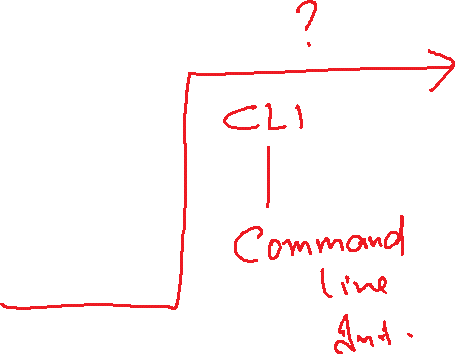 ?
CLI
Command
Line
Int.